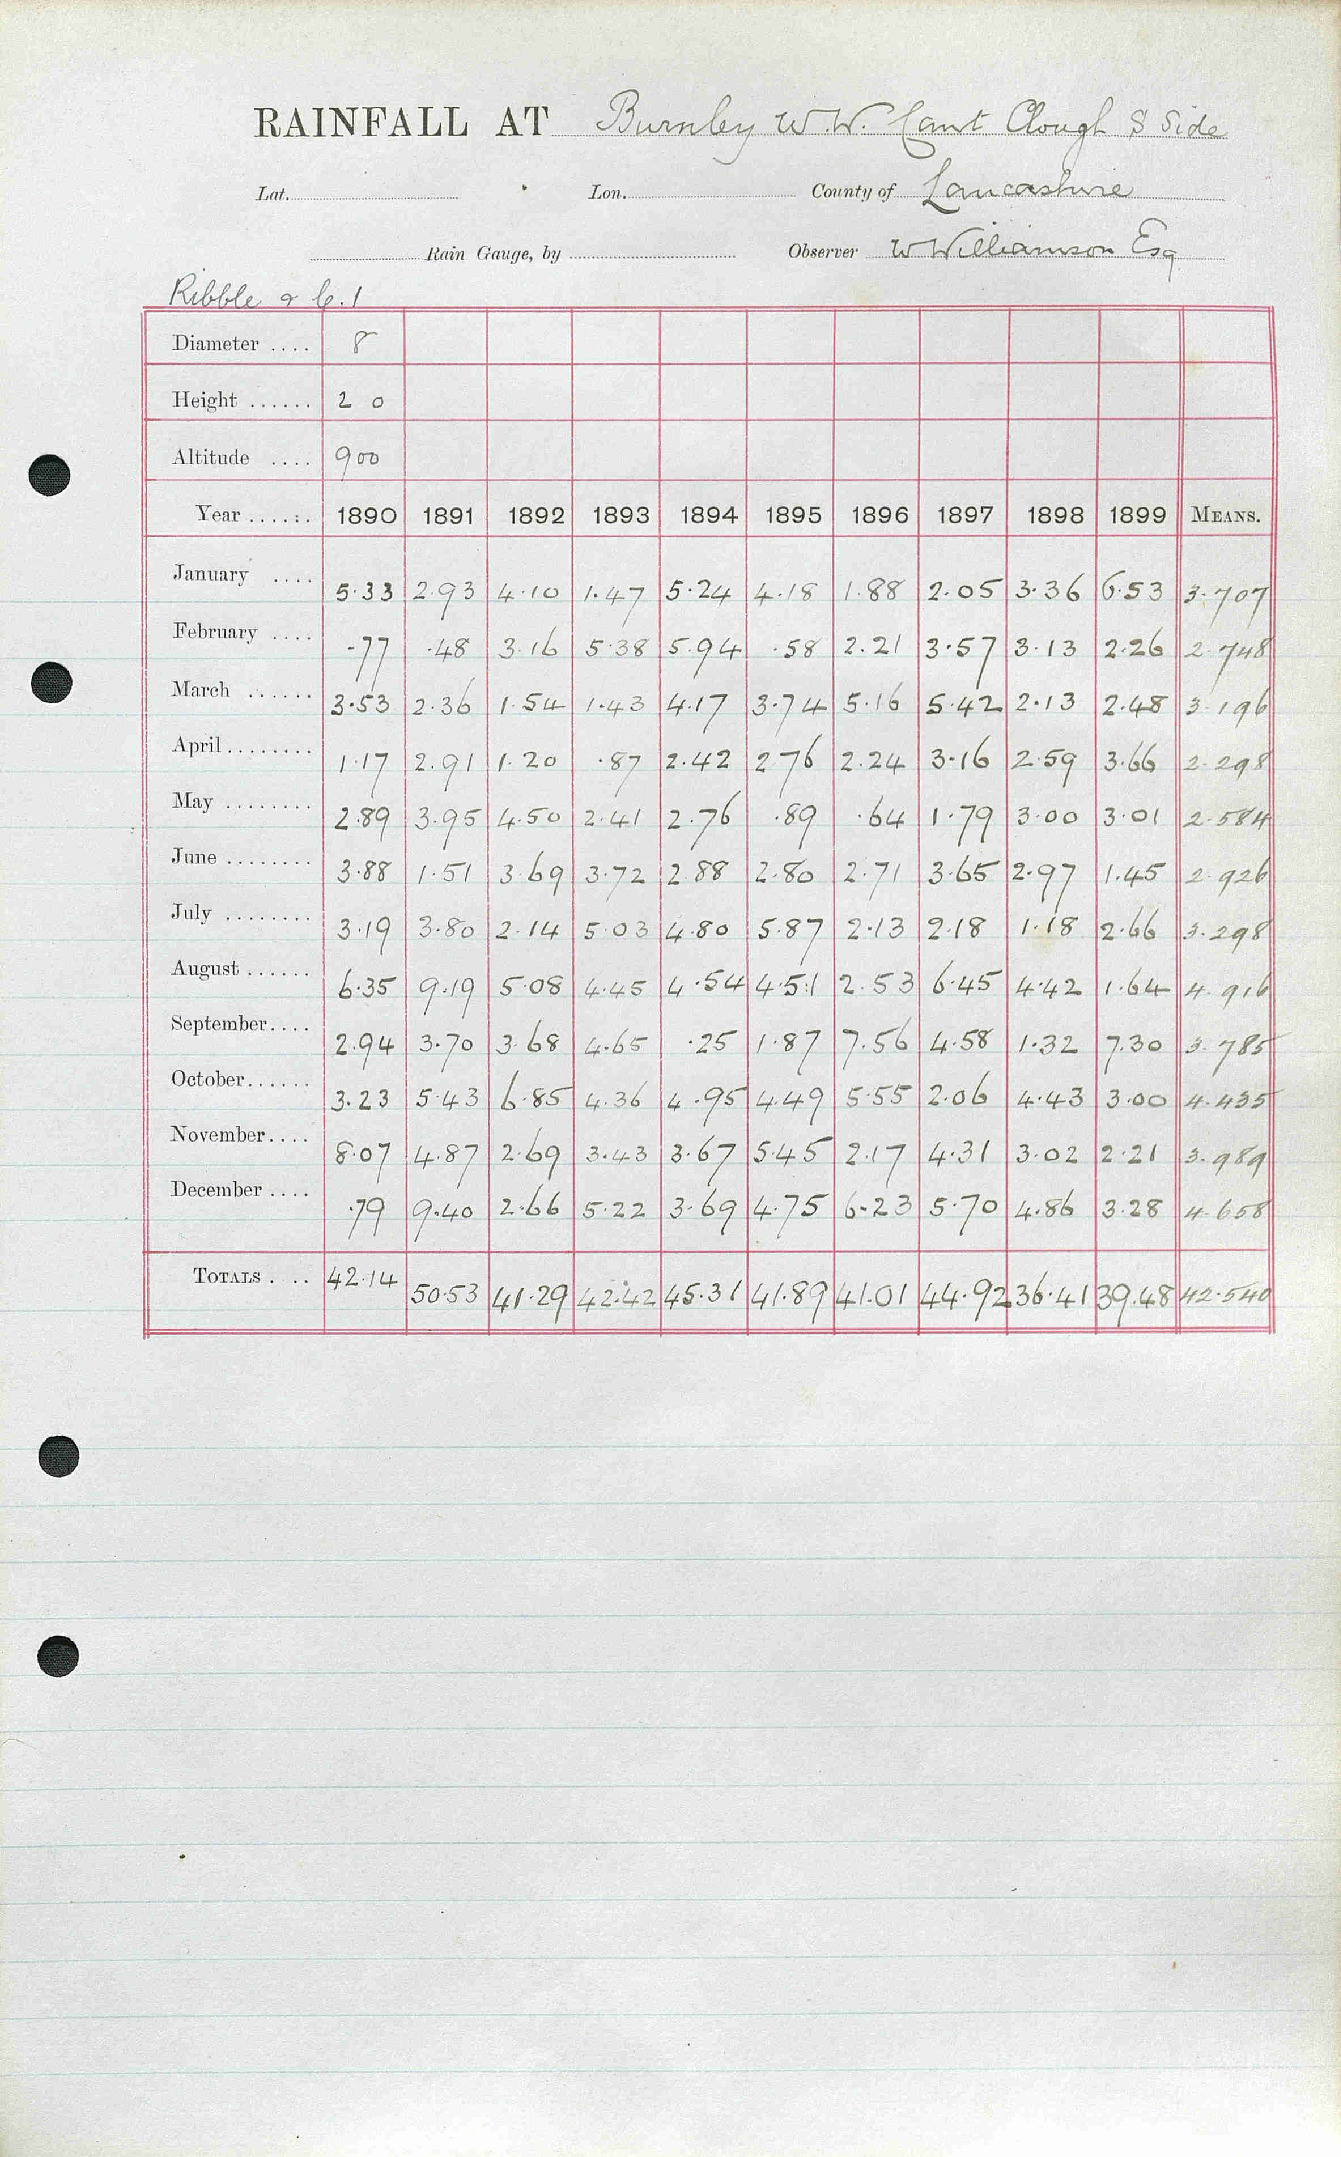 RAINFALL AT Burnley W.W. Cant Clough S Side
Lat. Lon. County of Lancashire
Rain Gauge, by Observer W Williamson Esq
Ribble &
Diameter .... 8
Height ...... 2 0
Altitude .... 900
Year ...... 1890 1891 1892 1893 1894 1895 1896 1897 1898 1899 MEANS.
January .... 5.33 2.93 4.10 1.47 5.24 4.18 1.88 2.05 3.36 6.53 3.707
February .... .77 .48 3.16 5.38 5.94 .58 2.21 3.57 3.13 2.26 2.748
March ...... 3.53 2.36 1.54 1.43 4.17 3.74 5.16 5.42 2.13 2.48 3.196
April ........ 1.17 2.91 1.20 .87 2.42 2.76 2.24 3.16 2.59 3.66 2.298
May ........ 2.89 3.95 4.50 2.41 2.76 .89 .64 1.79 3.00 3.01 2.584
June ........ 3.88 1.51 3.69 3.72 2.88 2.80 2.71 3.65 2.97 1.45 2.926
July ........ 3.19 3.80 2.14 5.03 4.80 5.87 2.13 2.18 1.18 2.66 3.298
August ...... 6.35 9.19 5.08 4.45 4.54 4.51 2.53 6.45 4.42 1.64 4.916
September.... 2.94 3.70 3.68 4.65 .25 1.87 7.56 4.58 1.32 7.30 3.785
October...... 3.23 5.43 6.85 4.36 4.95 4.49 5.55 2.06 4.43 3.00 4.435
November.... 8.07 4.87 2.69 3.43 3.67 5.45 2.17 4.31 3.02 2.21 3.989
December .... .79 9.40 2.66 5.22 3.69 4.75 6.23 5.70 4.86 3.28 4.658
TOTALS .... 42.14 50.53 41.29 42.42 45.31 41.89 41.01 44.92 36.41 39.48 42.540